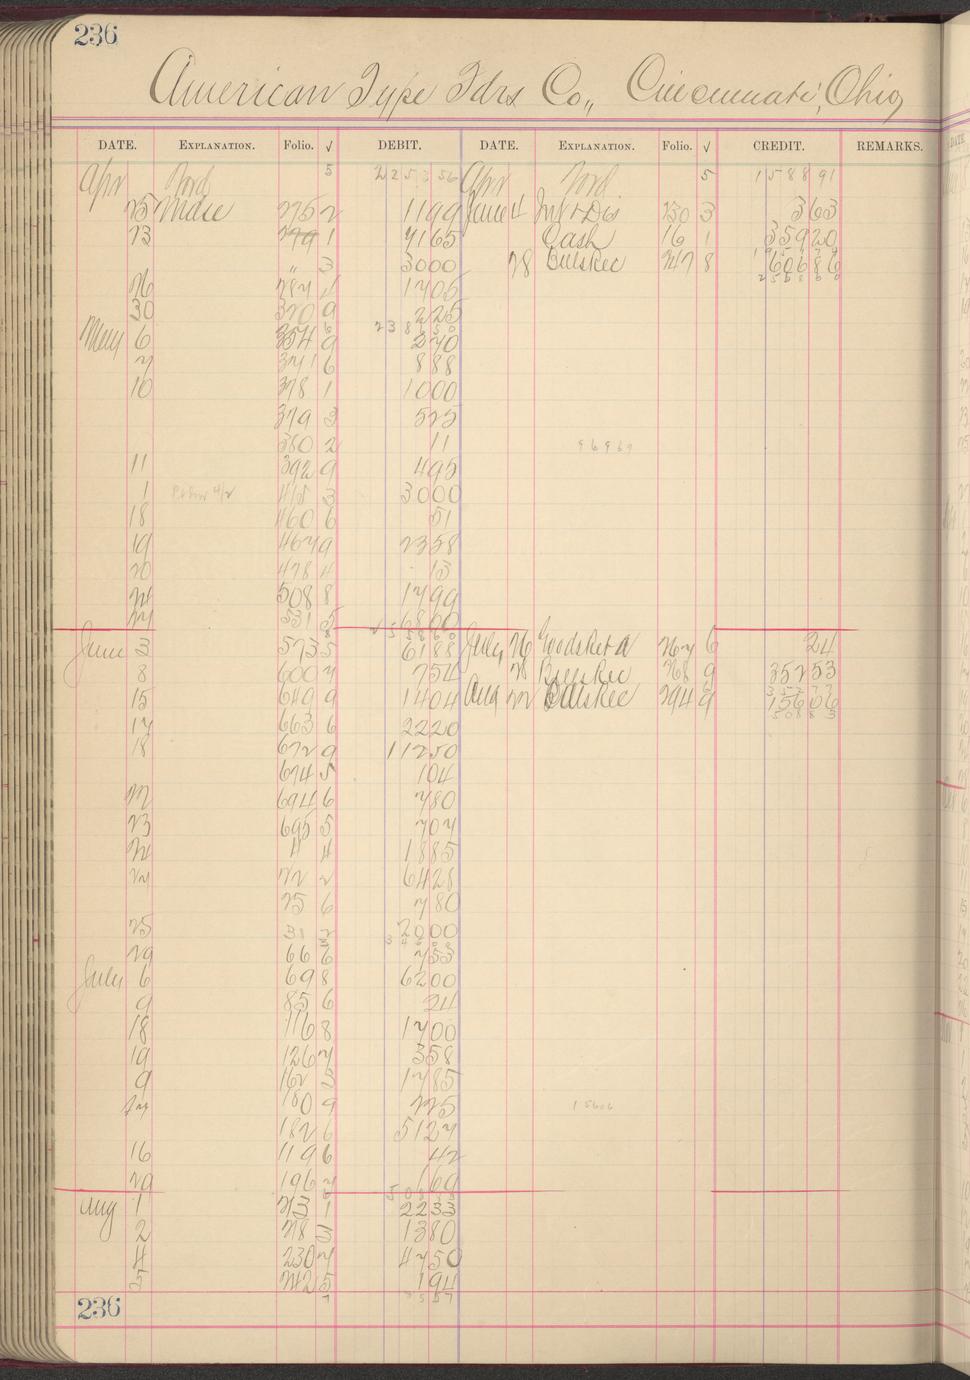 236
American Type Fdrs Co., Cincinnati, Ohio
DATE. EXPLANATION. Folio. √ DEBIT. DATE. EXPLANATION. Folio. √ CREDIT. REMARKS.
Apr Ford 5 2253 56 Apr Ford 5 1588 91
25 Mdse 275 2 11 99 June 4 Int & Dis 230 3 3 63
23 279 1 41 65 Cash 16 1 359 20
" 3 30 00 28 Billsrec 247 8 606 86
26 17 05
30 320 9 2 25
May 6 354 9 2 70
7 371 6 8 88
10 378 1 10 00
379 3
380 2 11
96969
11 392 9 4 95
1 415 3 30 00
18 460 6 51
19 467 9 23 58
20 478 4 13
508 8 17 99
531 5 68 00
June 3 573 5 61 88 July 26 267 6 24
8 600 7 7 54 28 Billsrec 268 9 352 53
15 649 9 14 04 Aug 22 Billsrec 294 9 156 06
17 663 6 22 20
18 672 9 112 50
674 5 1 04
694 6 7 80
23 695 5 7 07
4 4 18 85
22 2 64 28
25 6 7 80
25 31 2 20 00
29 66 6 7 53
July 6 69 8 62 00
9 85 6 24
18 116 8 17 00
19 126 7 3 58
9 162 3 17 85
180 9 2 25
15606
182 6 51 27
16 119 6 42
29 196 7 1 69
Aug 1 213 1 22 33
2 218 3 13 80
4 230 7 47 50
5 242 5 1 94
236